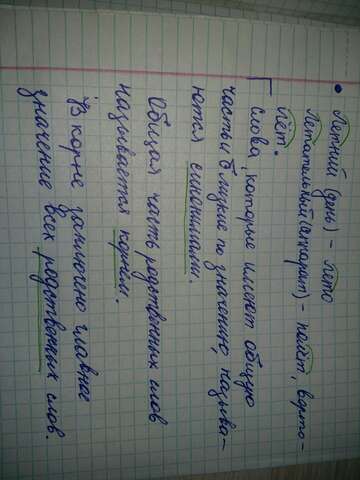 Летний (день) – лето
Летательный (аппарат) – полёт, верто-
лёт.
Слова, которые имеют общую
часть и близкие по значению, называ-
ются синонимами.
Общая часть родственных слов
называется корнем.
В корне заключено главное
значение всех родственных слов.